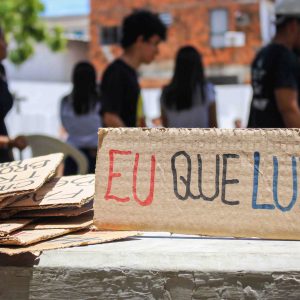 EU QUE LU